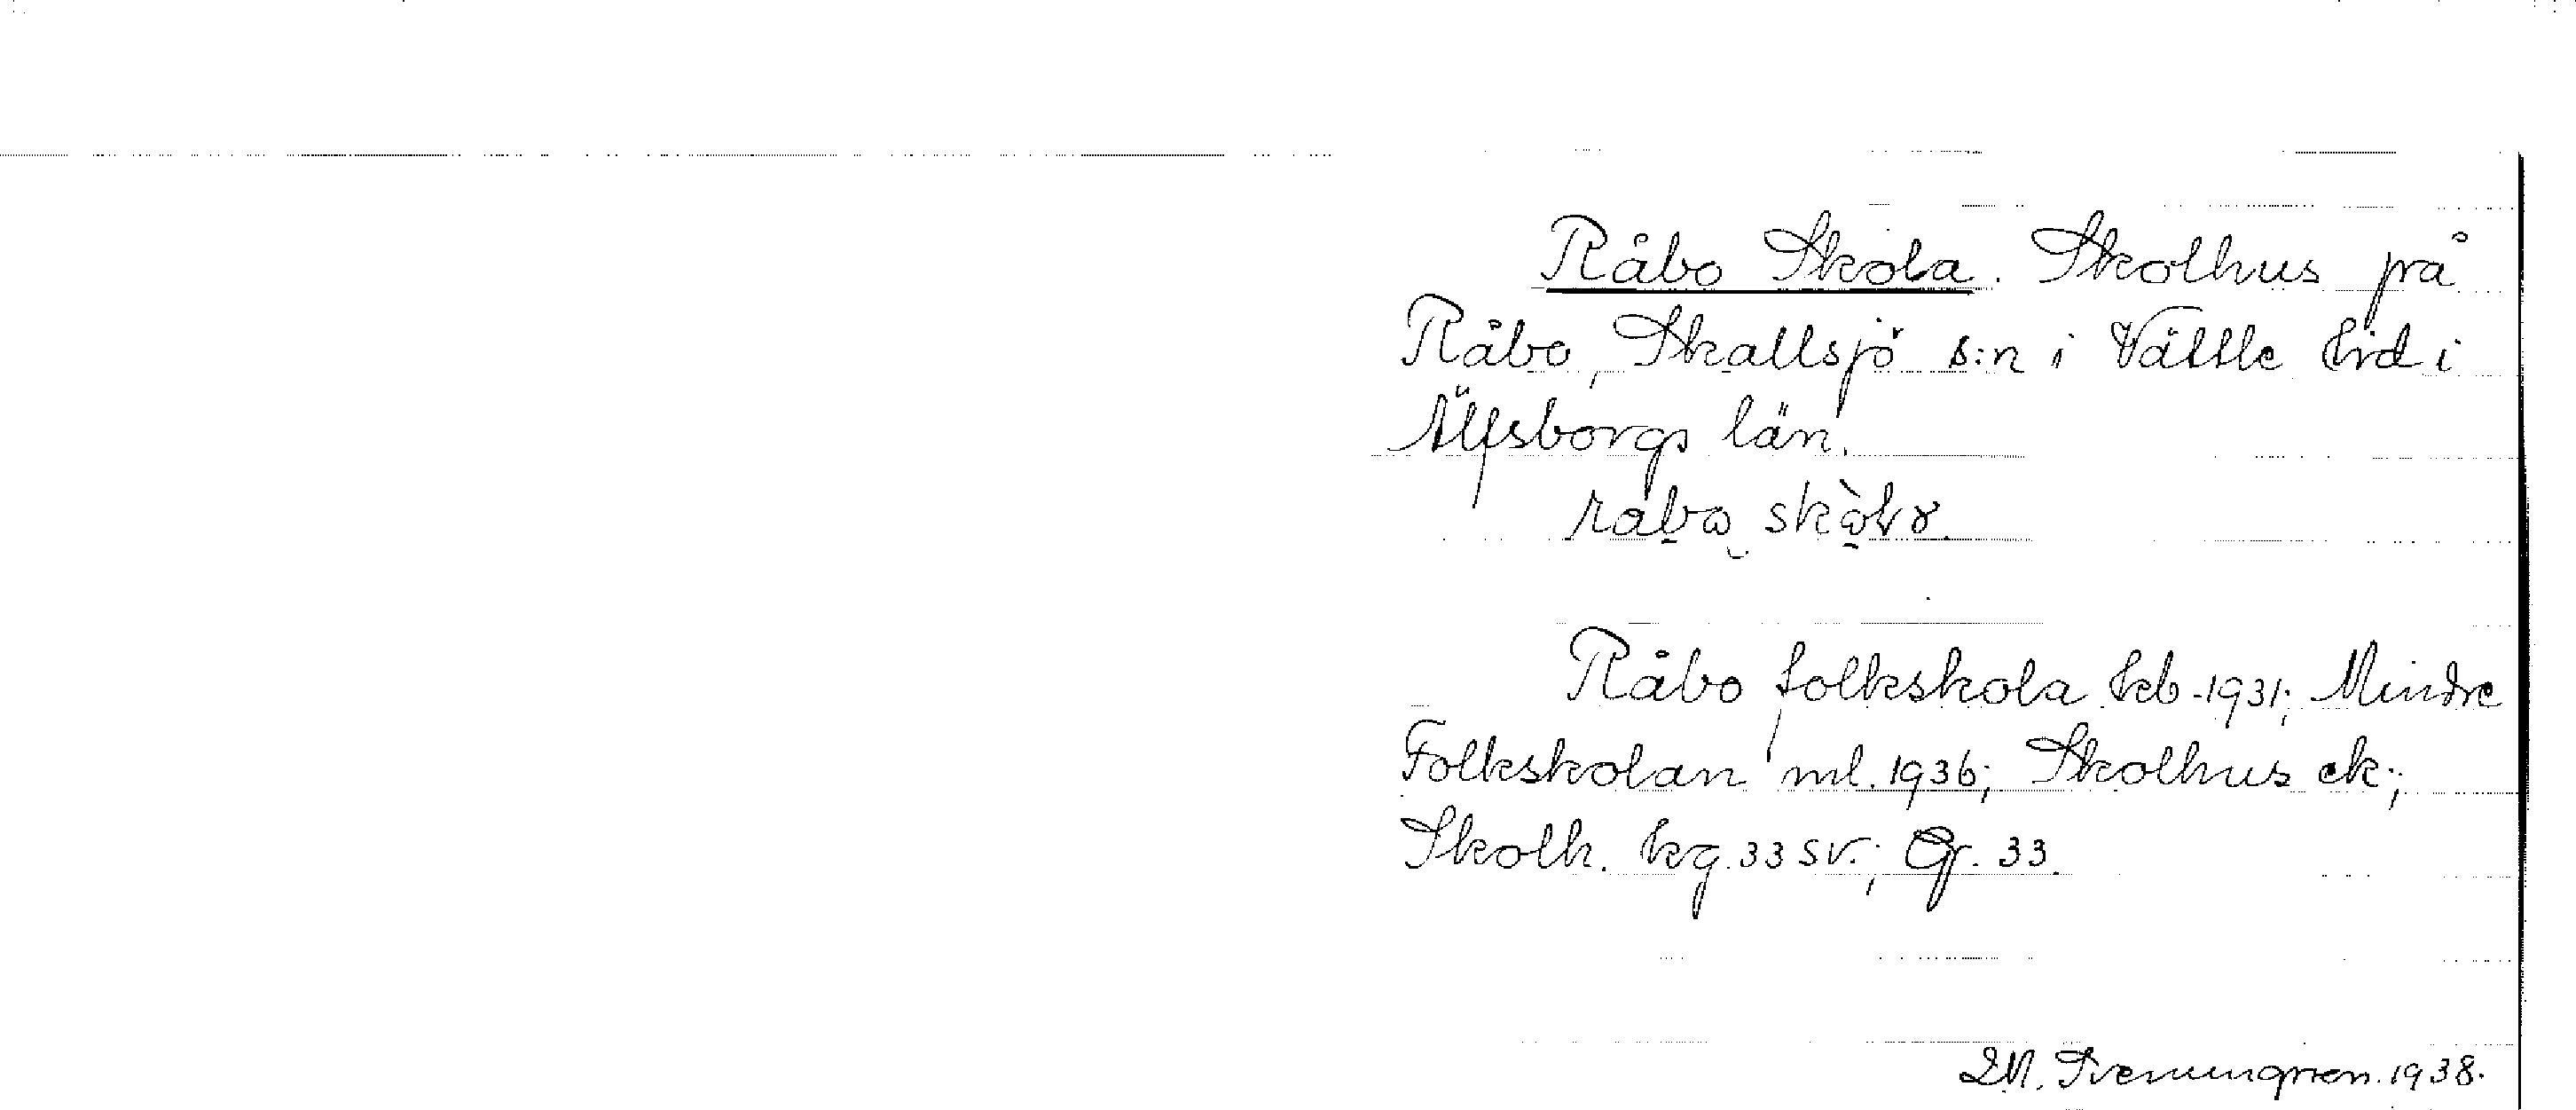 Råbo Skola. Skolhus på
Råbo, Skallsjö s:n i Vättle hrd i
Älfsborgs län.
Råbo folkskola kb-1931; Mindre
Folkskolan ml. 1936; Skolhus ek;
Skolh. kg. 33 sv.; Gr. 33.
1938.